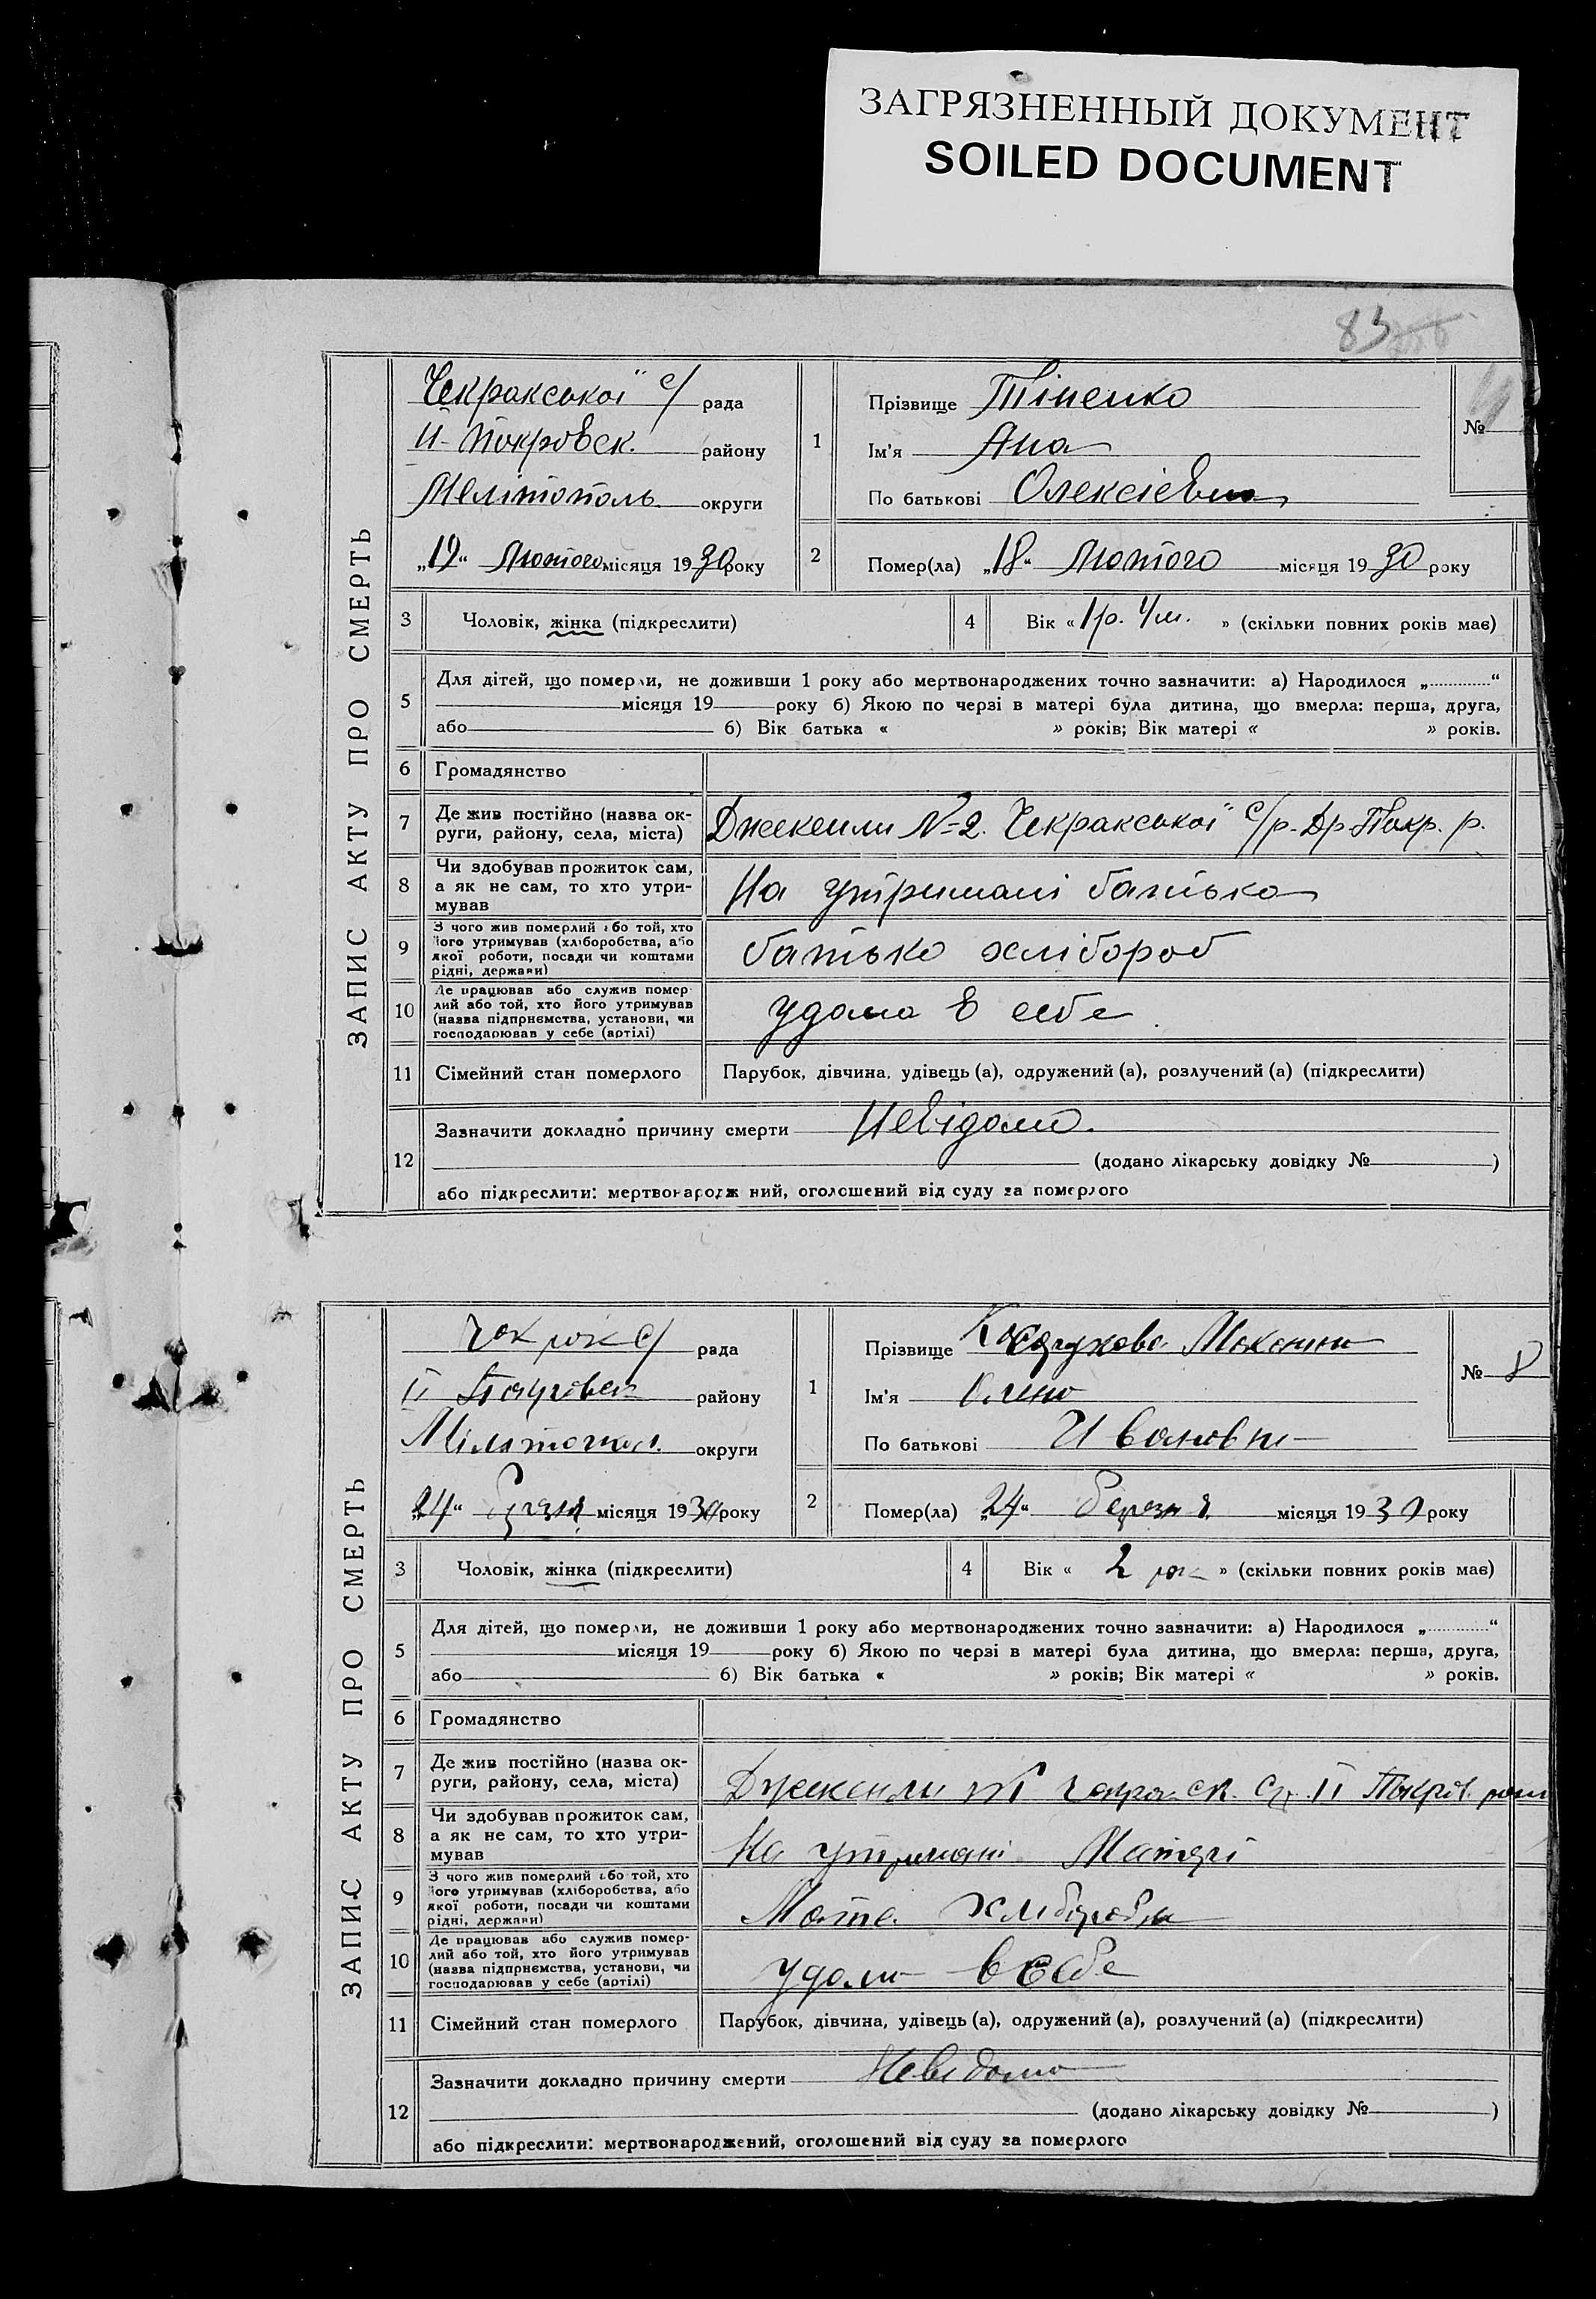 ЗАГРЯЗНЕННЫЙ ДОКУМЕНТ
SOILED DOCUMENT
83
ЗАПИС АКТУ ПРО СМЕРТЬ
Чекракської с/ рада
района району
Мелітополь округи
„19“ Лютого місяця 1930 року
1
Прізвище Тіненко
Ім'я Ана
По батькові Олексієвна
№
2
Помер(ла) „18“ Лютого місяця 1930 року
3 Чоловік, жінка (підкреслити)
4 Вік « 1 р. » (скільки повних років має)
5 Для дітей, що померли, не доживши 1 року або мертвонароджених точно зазначити: а) Народилося „ “
місяця 19 року б) Якою по черзі в матері була дитина, що вмерла: перша, друга,
або б) Вік батька « » років; Вік матері « » років.
6 Громадянство
7 Де жив постійно (назва ок-
руги, району, села, міста)
Джекенли №2. Чекракської с/р. Др-Покр. р.
8 Чи здобував прожиток сам,
а як не сам, то хто утри-
мував
На утримані батька
9 З чого жив померлий або той, хто
його утримував (хліборобства, або
якої роботи, посади чи коштами
рідні, держави)
батько хлібороб
10 Де працював або служив помер-
лий або той, хто його утримував
(назва підприємства, установи, чи
господарював у себе (артілі)
удома в себе
11 Сімейний стан померлого
Парубок, дівчина, удівець (а), одружений (а), розлучений (а) (підкреслити)
12 Зазначити докладно причину смерти Невідомо.
(додано лікарську довідку № )
або підкреслити: мертвонароджений, оголошений від суду за померлого
ЗАПИС АКТУ ПРО СМЕРТЬ
с/ рада
району
округи
„24“ березня місяця 1930 року
1
Прізвище
Ім'я Олена
По батькові Ивановна
№ 8
2
Помер(ла) „24“ березня місяця 1930 року
3 Чоловік, жінка (підкреслити)
4 Вік « 2 рок » (скільки повних років має)
5 Для дітей, що померли, не доживши 1 року або мертвонароджених точно зазначити: а) Народилося „ “
місяця 19 року б) Якою по черзі в матері була дитина, що вмерла: перша, друга,
або б) Вік батька « » років; Вік матері « » років.
6 Громадянство
7 Де жив постійно (назва ок-
руги, району, села, міста)
Джекенли
8 Чи здобував прожиток сам,
а як не сам, то хто утри-
мував
На утримані Матері
9 З чого жив померлий або той, хто
його утримував (хліборобства, або
якої роботи, посади чи коштами
рідні, держави)
10 Де працював або служив помер-
лий або той, хто його утримував
(назва підприємства, установи, чи
господарював у себе (артілі)
удома в себе
11 Сімейний стан померлого
Парубок, дівчина, удівець (а), одружений (а), розлучений (а) (підкреслити)
12 Зазначити докладно причину смерти Невідомо
(додано лікарську довідку № )
або підкреслити: мертвонароджений, оголошений від суду за померлого